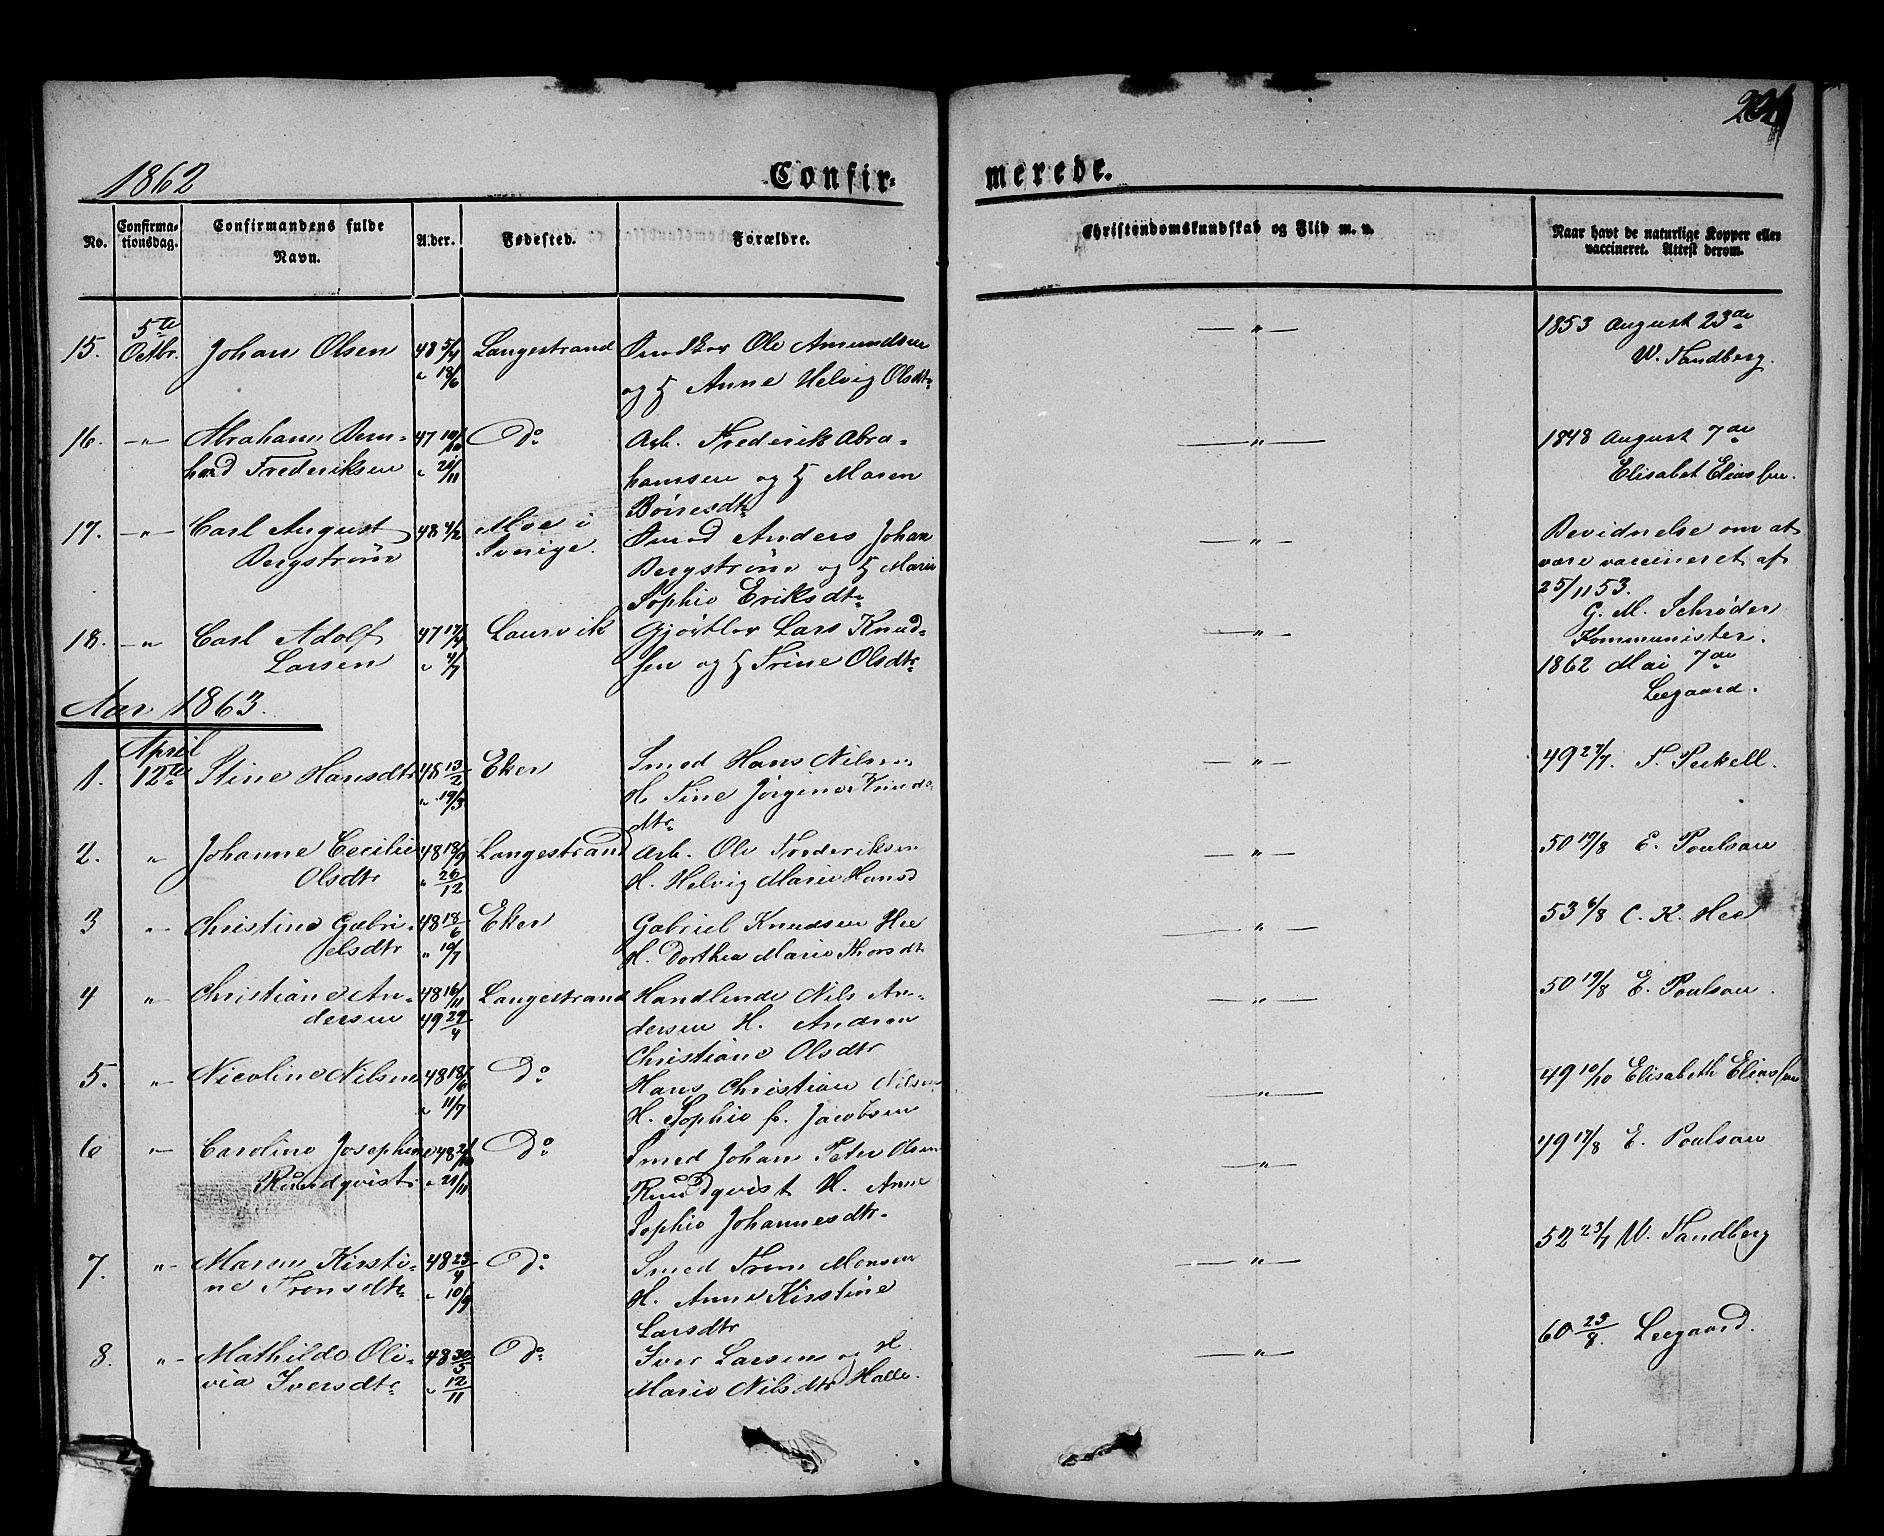 1862
Confir-
merede.
No.
Confirma-
tionsdag.
Confirmandens fulde
Navn.
Alder.
Fødested.
Forældre.
Christendomskundskab og Flid m. v.
Naar havt de naturlige Kopper eller
vaccineret. Attest derom.
15. 5te Octbr. Johan Olsen 48 5/4 " 18/6 Langestrand Ole Amundsen
og H Anne Helvig Olsdtr
— " —
1853 August 23de
W. Sandberg.
16. — " — Abraham Bern-
hard Frederiksen 47 " 21/11 Do
Arb. Frederik Abra-
hamsen og H Maren
— " —
1848 August 7de
Elisabet Eliassen.
17. — " — Carl August
Bergstrøm 48 4/2 Moe i
Sverige.
Anders Johan
Bergstrøm og H Marie
Sophie Eriksdtr
— " —
Bevidnelse om at
være vaccineret af
25/11 53.
G. M. Schrøder
Kommunister.
18. — " — Carl Adolf
Larsen 47 17/4 " 4/7 Laurvik
Gjørtler Lars Knud-
sen og H Trine Olsdtr
— " —
1862 Mai 7de
Leegaard.
Aar 1863.
1. April 12te Stine Hansdtr 48 13/2 " 19/3 Eker
Smed Hans Nilsen
H. Sine Jørgine Knuds-
dtr
— " —
49 27/7. T. Perkell.
2. " Johanne Cecilie
Olsdtr 48 18/9 " 26/12 Langestrand
Arb. Ole Frederiksen
H. Helvig Marie Hansd
— " —
50 19/8 E. Poulsen
3 " Christine Gabri-
elsdtr 48 18/6 " 19/7 Eker
Gabriel Knudsen Hee
H. Dorthea Marie Thorsdt
— " —
53 6/8 C. K. Hee
4 " Christiane An-
dersen 48 16/11 49 29/4 Langestrand
Handlende Nils An-
dersen H. Andrea
Christiane Olsdtr
— " —
50 19/8 E. Poulsen.
5. " Nicoline Nilsen 48 18/6 " 11/7 Do
Hans Christian Nilsen
H. Sophie f. Jacobsen
— " —
49 10/10 Elisabeth Eliassen
6 " Caroline Josephine
Rundqvist 48 " 21/11 Do
Smed Johan Peter Olsen
Rundqvist H. Anne
Sophie Johannesdtr.
— " —
49 17/8 E. Poulsen
7. " Maren Kirsti-
ne Tronsdtr 48 23/4 " 10/9 Do
Smed Tron Monsen
H. Anne Kirstine
Larsdtr
— " —
52 23/7 W. Sandberg
8. " Mathilde Oli-
via Iversdtr 48 30/5 " 12/11 Do
Iver Larsen og H.
Marie Nilsdtr Halle.
— " —
60 23/8. Leegaard.